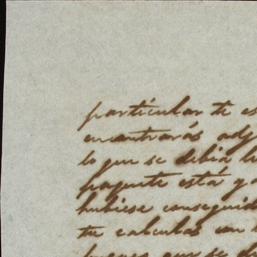 particular te es
encontrarás adj
lo que se debia
paquete está ya
hubiese conseguid
tu calculas con